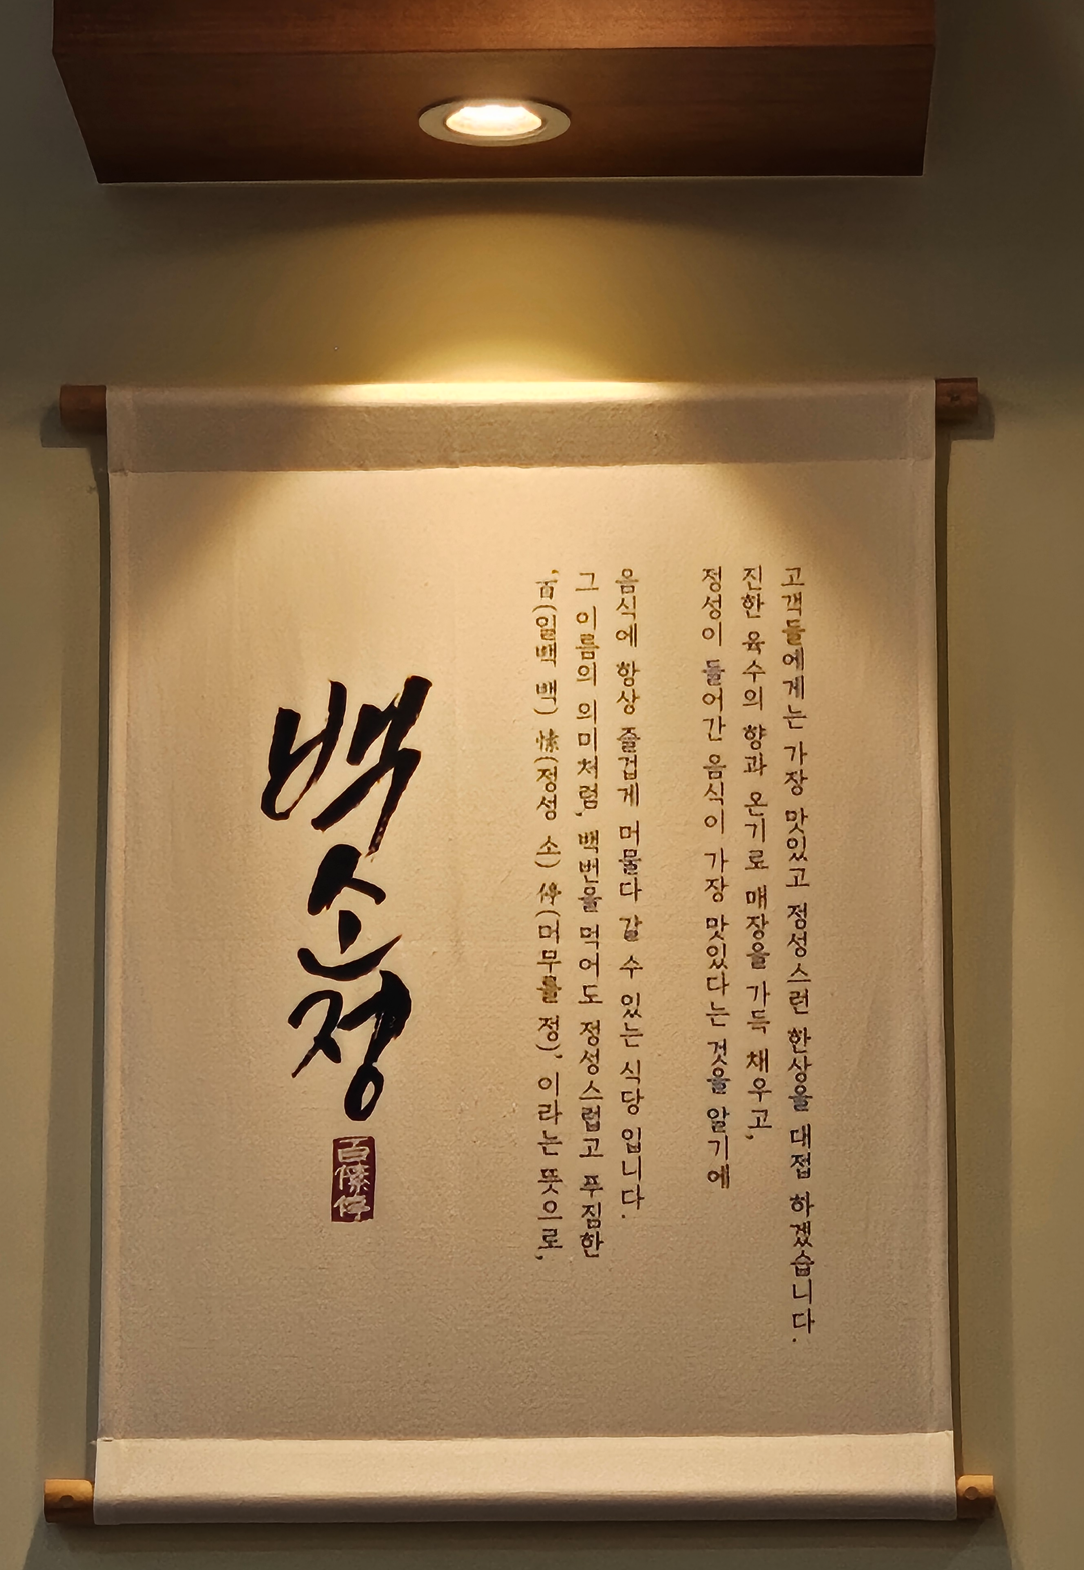 백소정
百愫停
'百(일백 백) 愫(정성 소) 停(머무를 정)' 이라는 뜻으로,
그 이름의 의미처럼, 백번을 먹어도 정성스럽고 푸짐한
음식에 항상 즐겁게 머물다 갈 수 있는 식당 입니다.
정성이 들어간 음식이 가장 맛있다는 것을 알기에
진한 육수의 향과 온기로 매장을 가득 채우고,
고객들에게는 가장 맛있고 정성스런 한상을 대접 하겠습니다.